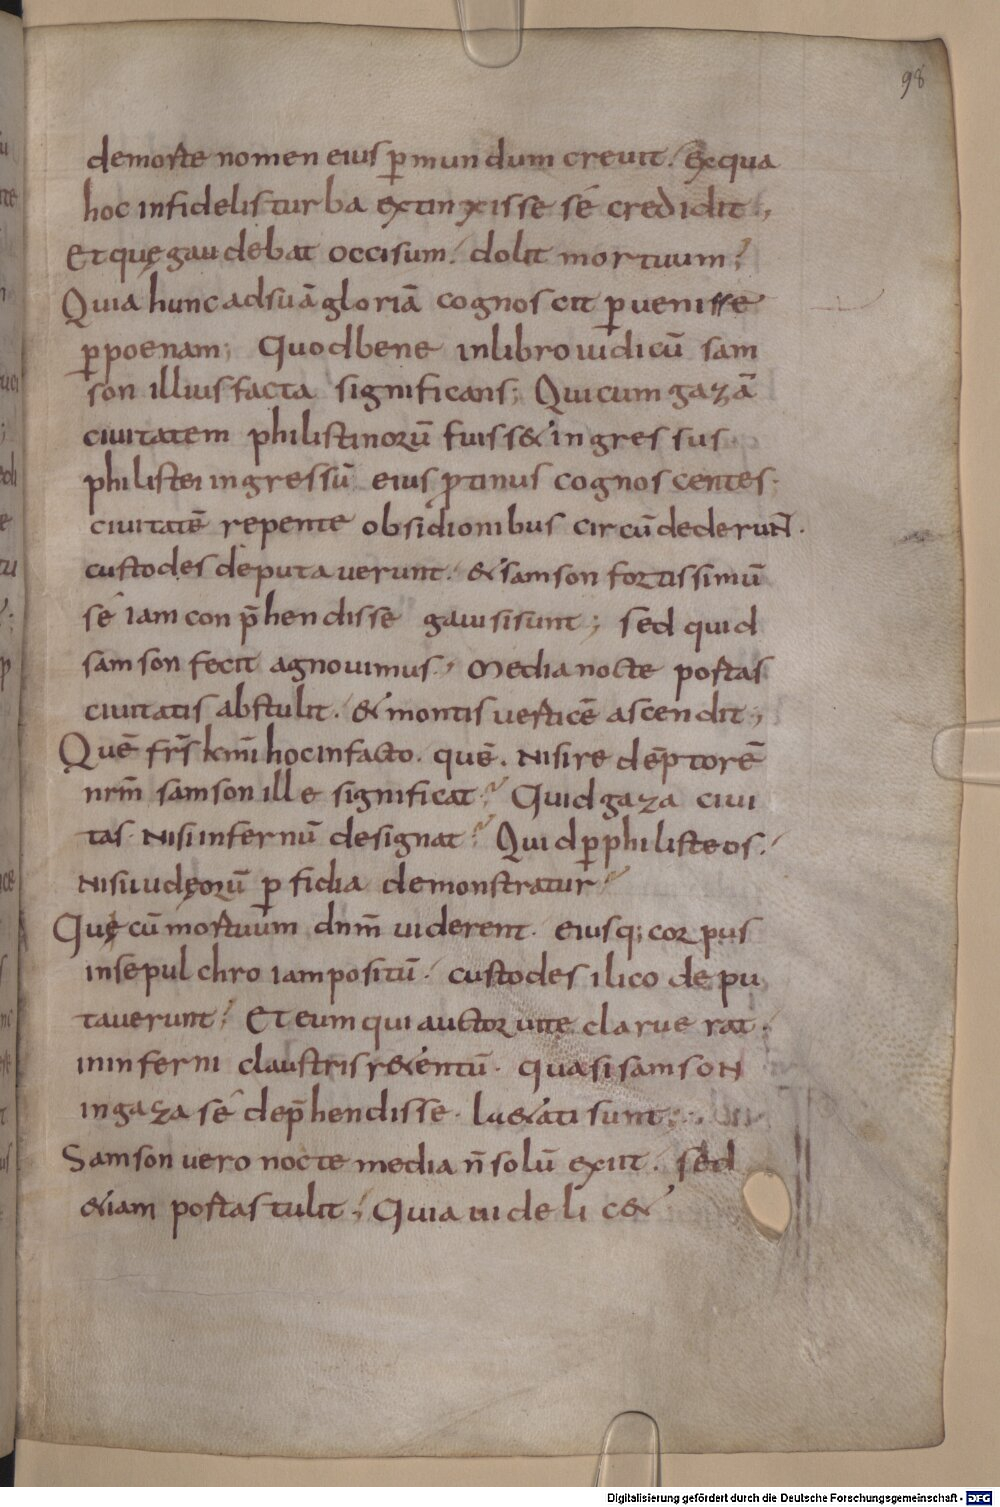 98
demorte nomen eius ꝑ mundum crevit. exqua
hoc infidelis turba extinxisse sé credidit;
Et quę gaudebat occisum. dolit mortuum;
Quia hunc adsuā gloriā cognoscit ꝑuenisse
ꝑpoenam; Quod bene inlibro iudicū sam
son illius facta significans; Qui cum gazā
ciuitatem philistinorū fuiss& ingressus
philistei ingressū eius ꝓtinus cognoscentes.
ciuitatē repente obsidionibus circūdederuN̄.
custodes deputauerunt. & samson fortissimū
sé iam conp̄hendisse gauisi sunt; sed quid
samson fecit agnouimus; Media nocte portas
ciuitatis abstulit. & montis uerticē ascendit;
Quē frs̄ kmī hoc infacto. quē. Nisi redēptorē
nrm̄ samson ille significat? Quid gaza ciui
tas. Nisi infernū designat? Quid ꝑ philisteos.
Nisi iudęorū ꝑfidia demonstratur?
Quę cū mortuum dnm̄ uiderent. eiusq; corpus
insepulchro iam positū. custodes ilico depu
tauerunt; Et eum qui auctor uite claruerat.
ininferni claustris r&entū. quasi samsoN
ingaza sé dep̄hendisse. l&ati sunt;
Samson uero nocte media n̄ solū exiit. sed
&iam portas tulit; Quia uidelic&
Digitalisierung gefördert durch die Deutsche Forschungsgemeinschaft - DFG